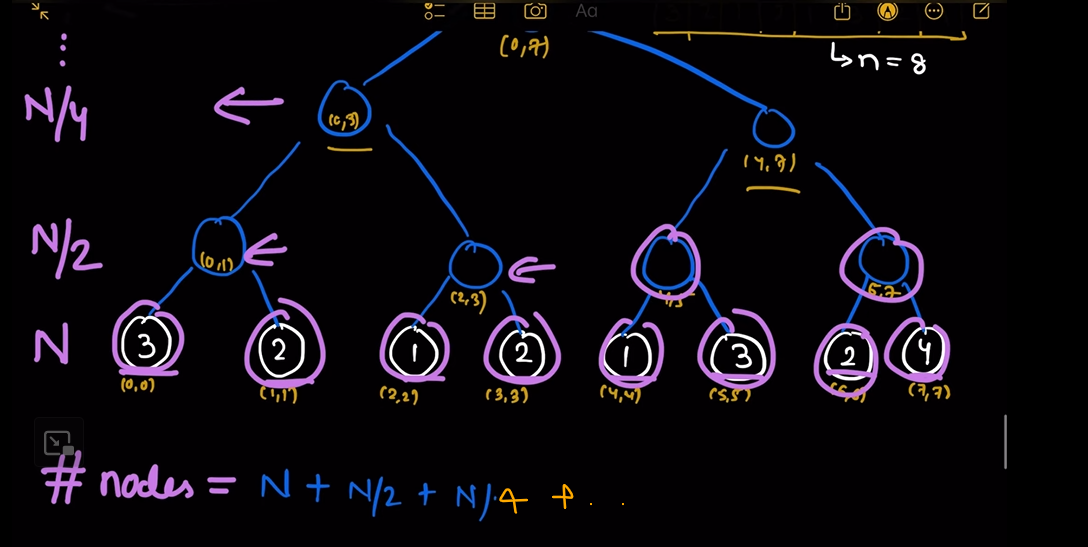 Aa
(0,7)
↳ n = 8
⋮
N/4 ← (0,3)
(4,7)
N/2
(0,1) ←
(2,3) ←
4,5
6,7
N 3 2 1 2 1 3 2 4
(0,0) (1,1) (2,2) (3,3) (4,4) (5,5) (6,6) (7,7)
# nodes = N + N/2 + N/4 + . . .